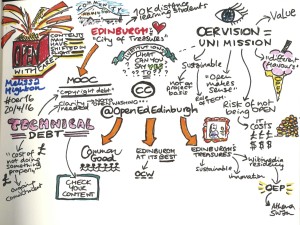 OPEN
WITH CARE
CONTENTS
MAY HAVE
SHIFTED IN
TRANSIT
Melissa
Highton
#oer16
20/4/16
10K distance
learning students
EDINBURGH =
"City of Treasures"
INSTITUTIONS
WHAT
CAN YOU
SAY
YES
TO???
OERVISION =
UNI MISSION
Value
different
flavours!
Sustainable
not on
project
basis
"Open
makes
sense"
Risk of not
being OPEN
IT
COSTS
$$$
MOOC
"copyright debt"
Clarity
needed
CC
@OpenEdEdinburgh
TECHNICAL
DEBT
cost of
not doing
something
properly
ongoing
commitment
CHECK
YOUR
CONTENT
Common
Good
EDINBURGH
AT ITS BEST
OCW
EDINBURGH'S
TREASURES
sustainable
innovation
Wikimedia
residency
OEP
Athena
Swan